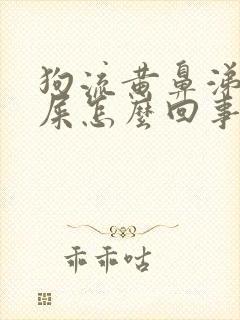 狗流黄鼻涕
屎怎麼回事
乖乖咕